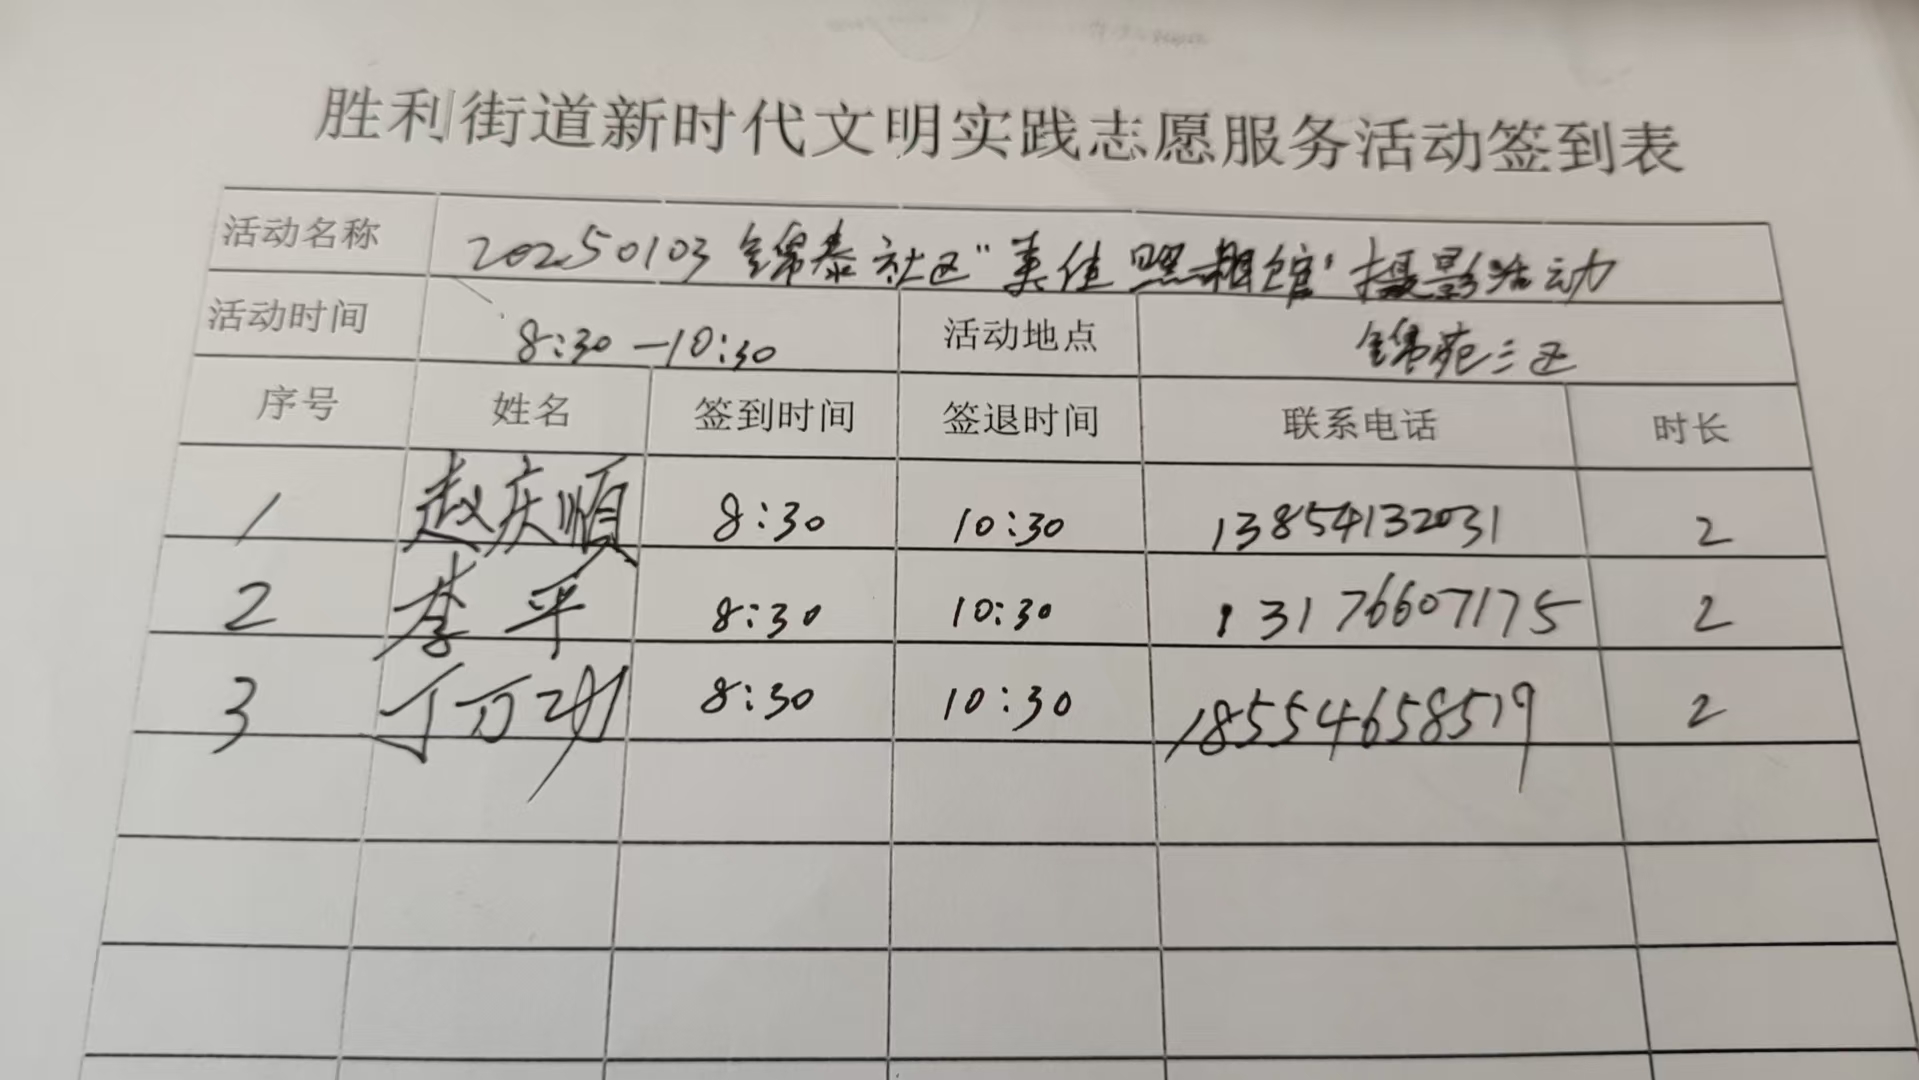 胜利街道新时代文明实践志愿服务活动签到表
活动名称 20250103 锦泰社区"美佳照相馆"摄影活动
活动时间 8:30-10:30 活动地点 锦苑三区
序号 姓名 签到时间 签退时间 联系电话 时长
1 赵庆順 8:30 10:30 13854132031 2
2 李平 8:30 10:30 13176607175 2
3 丁万功 8:30 10:30 18554658519 2